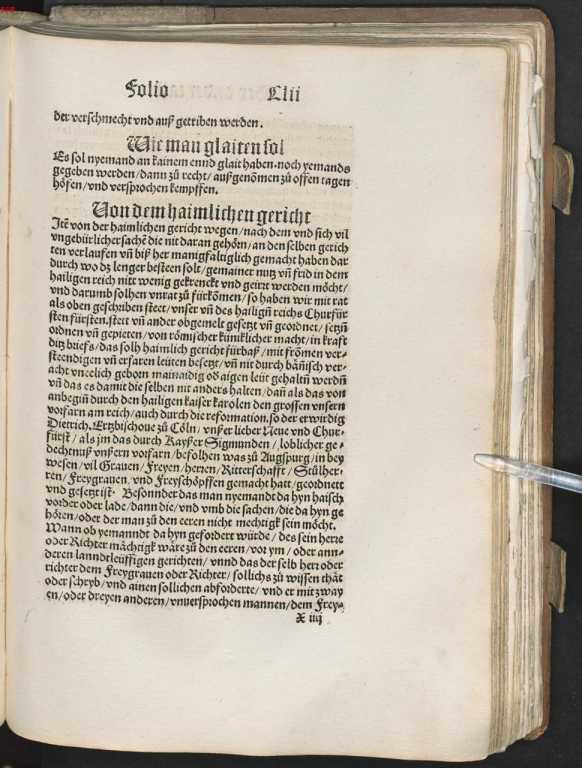 Folio Clii
der verschmecht vnd auß getriben werden.
Wie man glaiten sol
Es sol nyemand an kainem ennd glait haben. noch yemands
gegeben werden/dann zů recht/außgenōmen zů offen tagen
höfen/vnd versprochen kempffen.
Von dem haimlichen gericht
Itē von der haimlichen gericht wegen/nach dem vnd sich vil
vngebürlicher sachē die nit daran gehörn/an den selben gerich
ten verlaufen vn̄ biß her manigfaltiglich gemacht haben dar
durch wo dz lenger besteen solt/gemainer nutz vn̄ frid in dem
hailigen reich nitt wenig gekrenckt vnd geirrt werden möcht/
vnd darumb solhen vnrat zů fürkōmen/so haben wir mit rat
als oben geschriben steet/vnser vn̄ des hailign̄ reichs Churfür
sten fürsten. stett vn̄ ander obgemelt gesetzt vn̄ geordnet/setzn̄
ordnen vn̄ gepieten/von römischer küniklicher macht/in kraft
ditz briefs/das solh haimlich gericht fürbaß/mit frōmen ver-
steendigen vn̄ erfaren leüten besetzt/vn̄ nit durch bān̄isch ver-
acht vneelich geborn mainaidig od aigen leüt gehaltn̄ werdn̄
vn̄ das es damit die selben nit anders halten/dan̄ als das von
anbegin̄ durch den hailigen kaiser karolen den grossen vnsern
vorfarn am reich/auch durch die reformation. so der erwirdig
Dietrich. Ertzbischoue zů Cöln/vnßer lieber Neue vnd Chur-
fürst/als jm das durch Kayßer Sigmunden/loblicher ge-
dechtnuß vnßern vorfarn/befolhen was zů Augspurg/in bey
wesen/vil Grauen/Freyen/herren/Ritterschafft/Stůlher-
ren/Freygrauen, vnd Freyschöpffen gemacht hatt/geordnett
vnd gesetzt ist. Besonnder das man nyemandt da hyn haisch
vorder oder lade/dann die/vnd vmb die sachen/die da hyn ge
hören/oder der man zů den eeren nicht mechtigk sein möcht.
Wann ob yemanndt da hyn gefordert würde/des sein herre
oder Richter mächtigk wäre zů den eeren/vor ym/oder ann-
deren lanndtleüffigen gerichten/vnnd das der selb herr oder
richter dem Freygrauen oder Richter/sollichs zů wissen thät
oder schryb/vnd ainen sollichen abforderte/vnd er mit zway
en/oder dreyen anderen/vnuersprochen mannen/dem Frey-
X iiij